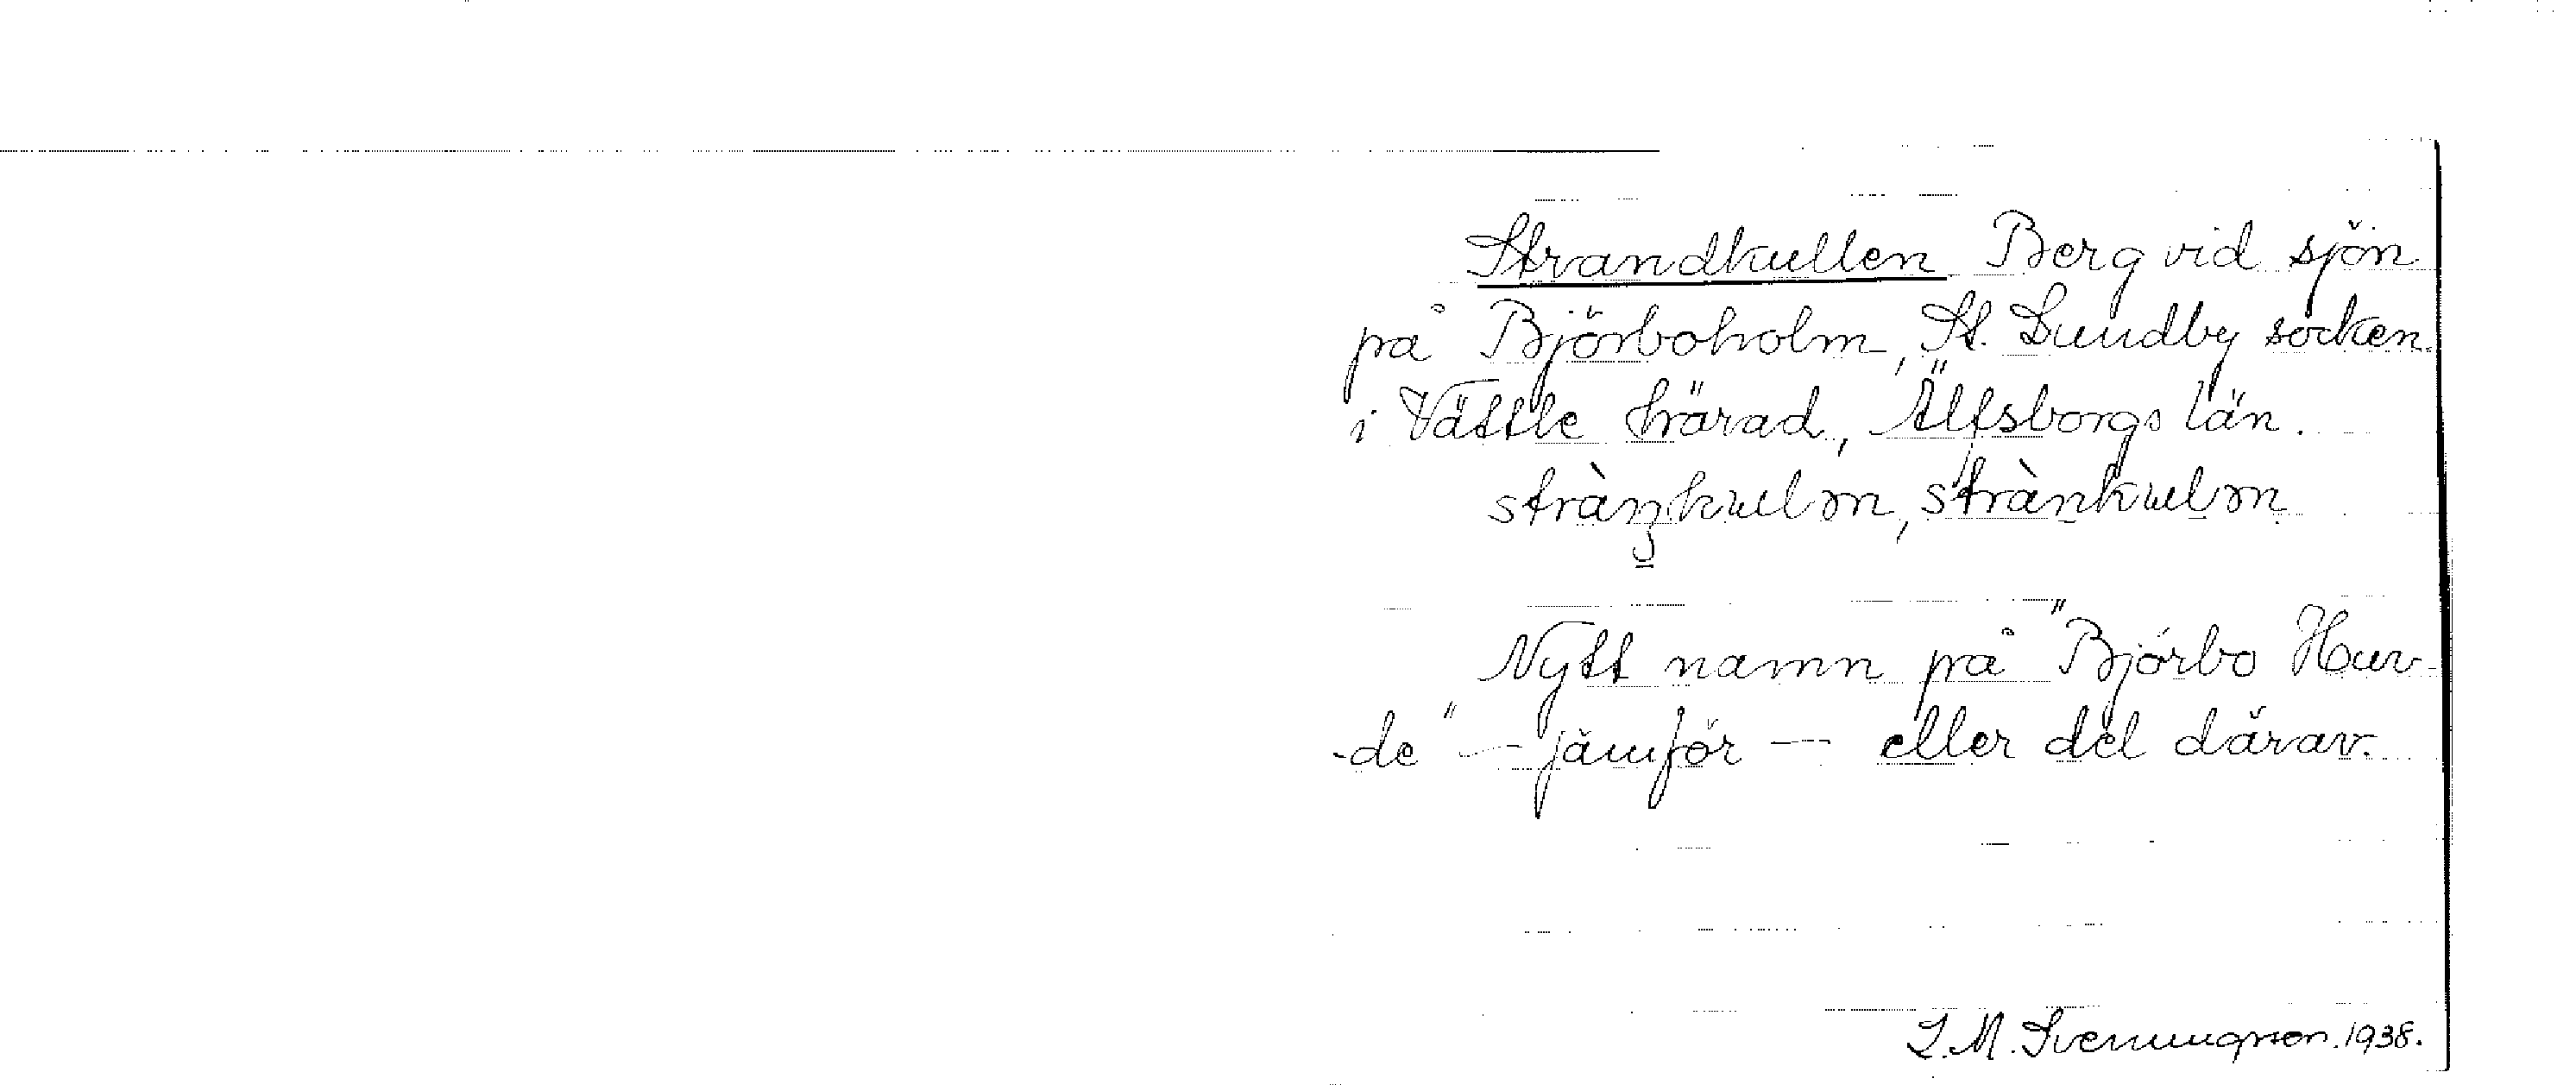 Strandkullen Berg vid sjön
på Björboholm, St. Lundby socken
i Vättle härad, Älfsborgs län.
stràn̠kulɘn, stràn̠kul̠ɘn
Nytt namn på "Björbo Hur-
-de" — jämför — eller del därav.
J. M. Svenungsson. 1938.